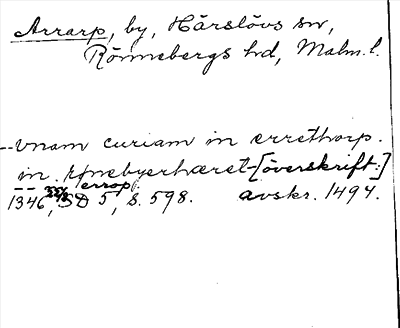 Arrarp, by, Härslövs sn,
Rönnebergs hd, Malm. l.
--Vnam curiam in errethorp.
in rønebyerhæret-[överskrift:]
errop].
1346, SD 5, s. 598. avskr. 1494.